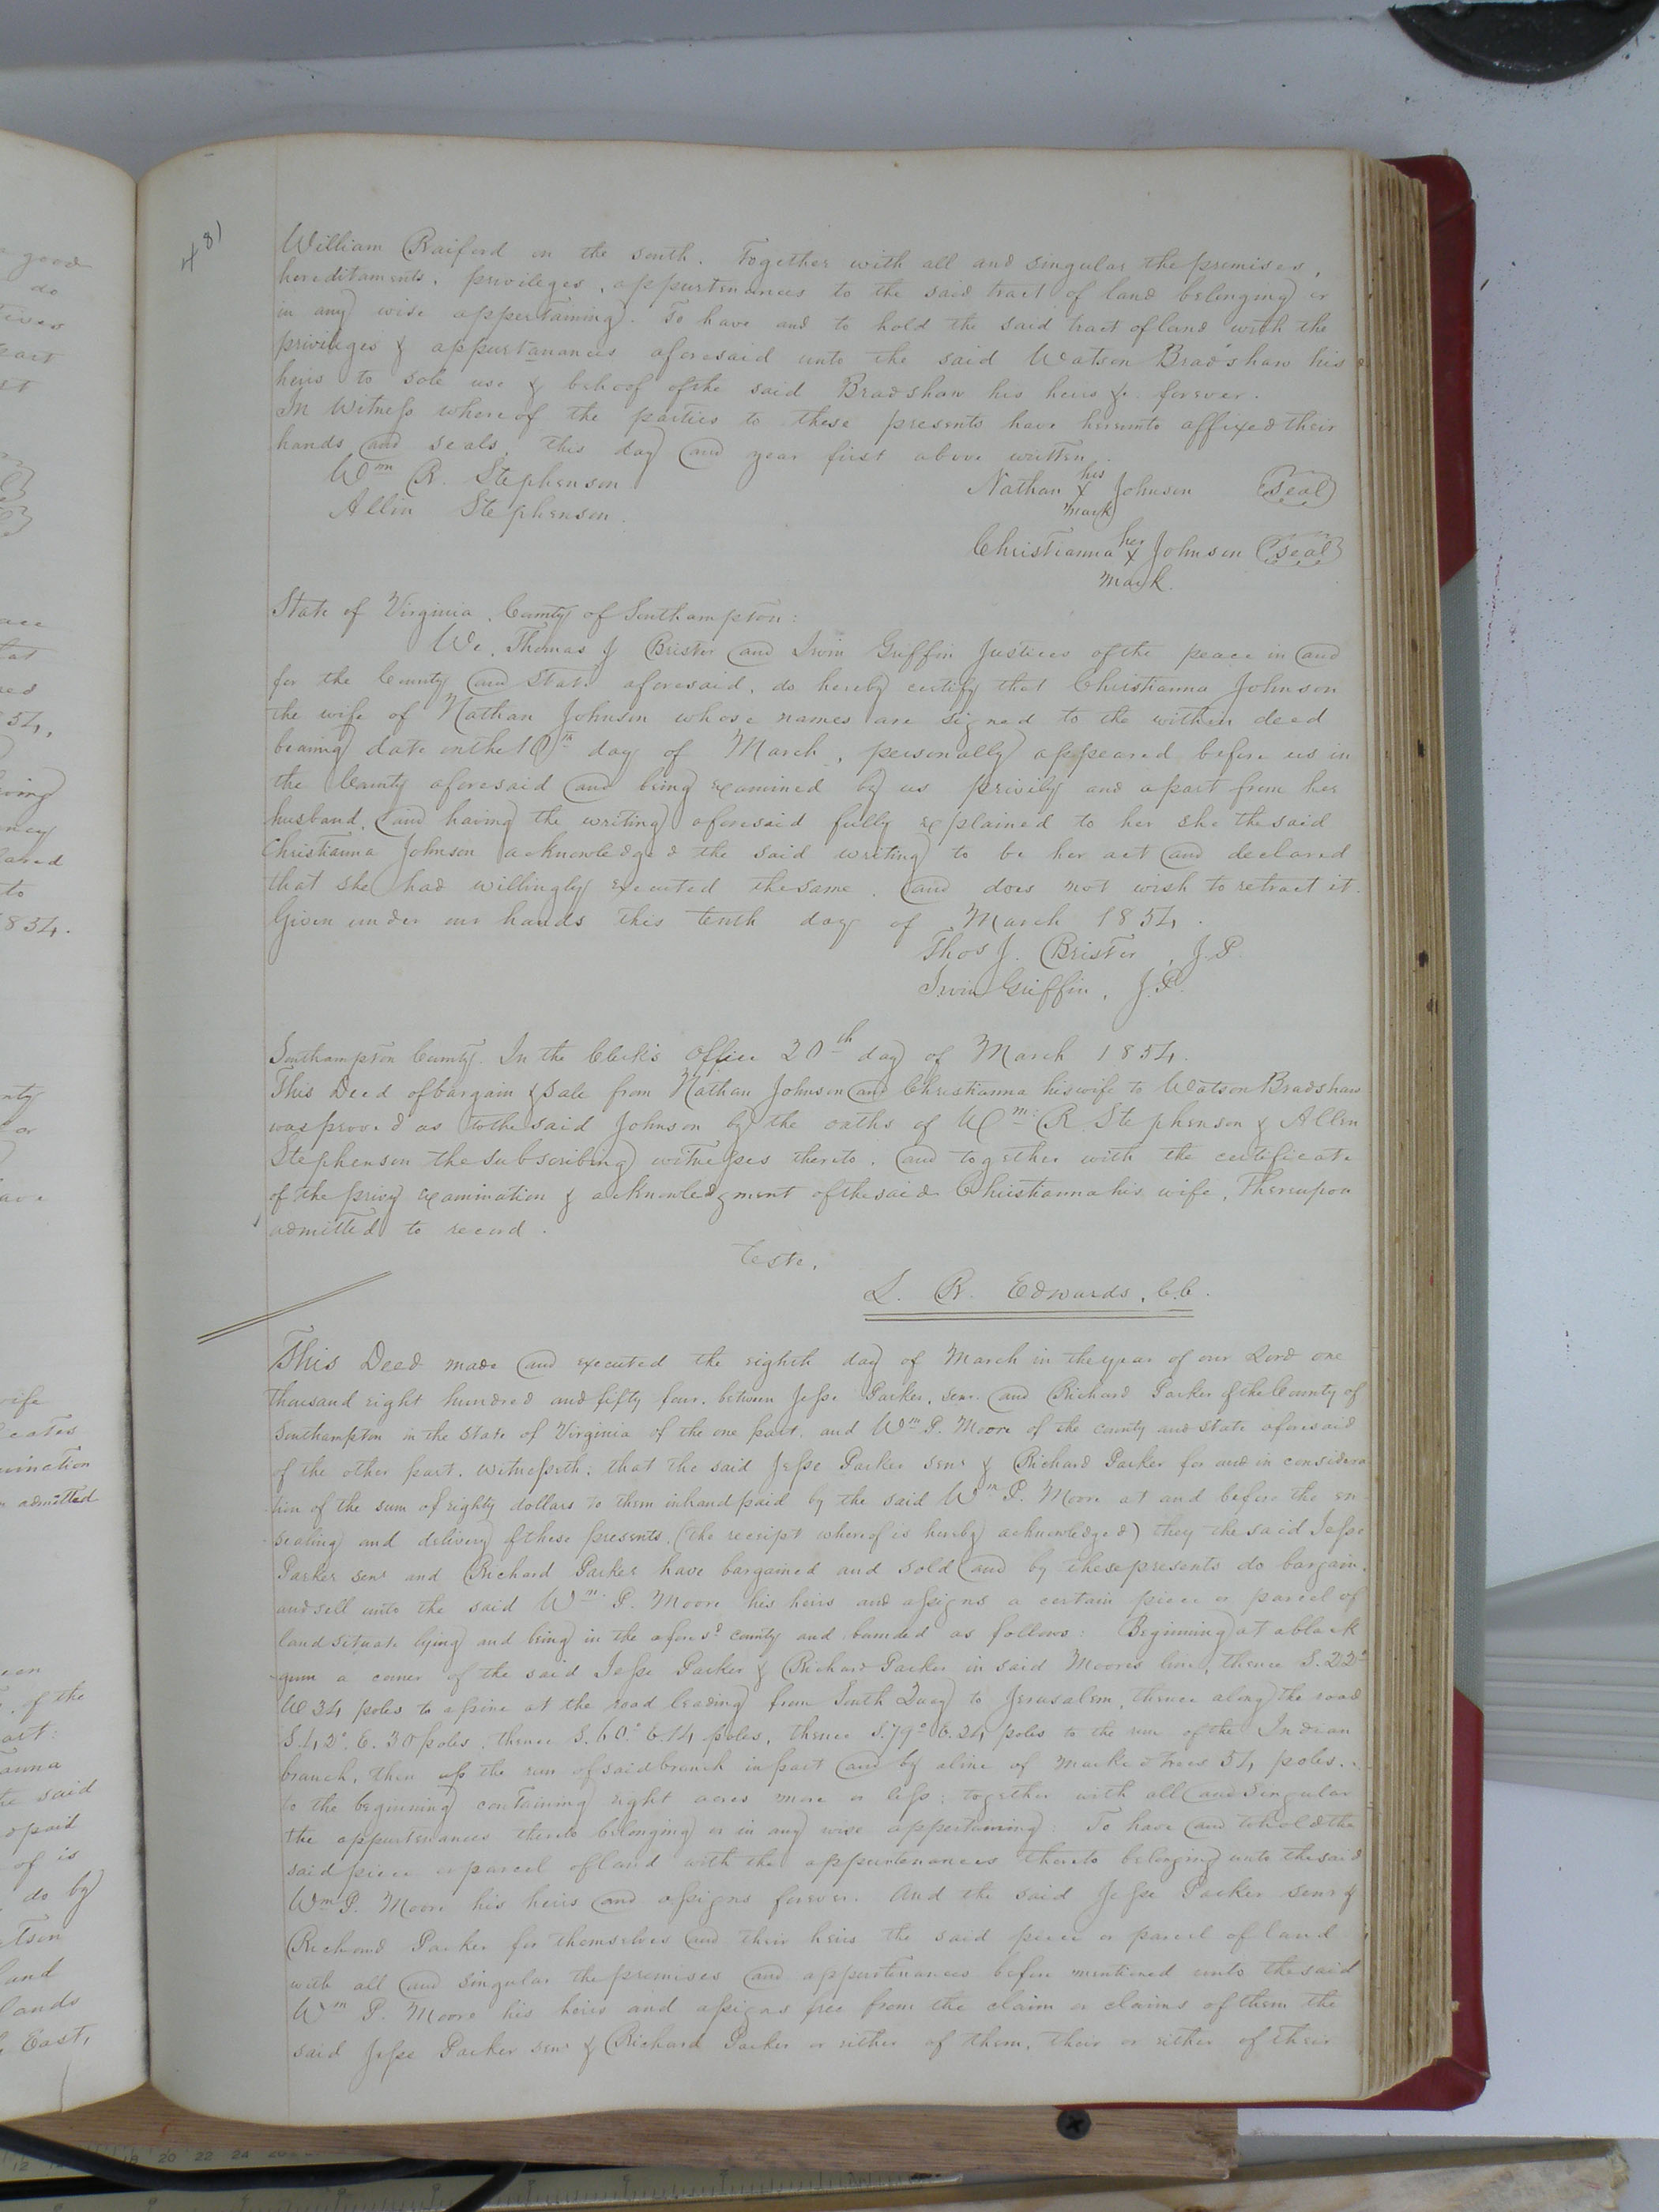 481
William Raiford on the south. Together with all and singular the premises,
hereditaments, privileges, appurtenances to the said tract of land belonging or
in any wise appertaining. To have and to hold the said tract of land with the
privileges & appurtanances aforesaid unto the said Watson Bradshaw his &
heirs to sole use & behoof of the said Bradshaw his heirs &c forever.
In Witness whereof the parties to these presents have hereunto affixed their
hands and seals, this day and year first above written.
Wm R. Stephenson
Allin Stephenson.
Nathan his X mark Johnson (Seal)
Christianna her X mark Johnson (Seal)
State of Virginia, County of Southampton:
We, Thomas J Brister and Irvin Griffin Justices of the peace in and
for the County and State aforesaid, do hereby certify that Christianna Johnson
the wife of Nathan Johnson whose names are signed to the within deed
bearing date on the 10th day of March, personally appeared before us in
the County aforesaid and being examined by us privily and apart from her
husband, and having the writing aforesaid fully explained to her she the said
Christianna Johnson acknowledged the said writing to be her act and declared
that she had willingly executed the same, and does not wish to retract it.
Given under our hands this tenth day of March 1854.
Thos J. Brister, J.P.
Irvin Griffin, J.P.
Southampton County. In the Clerk's Office 20th day of March 1854.
This Deed of bargain & Sale from Nathan Johnson and Christianna his wife to Watson Bradshaw
was proved as to the said Johnson by the oaths of Wm: R. Stephenson & Allen
Stephenson the subscribing witnesses thereto, and together with the certificate
of the privy examination & acknowledgment of the said Christianna his wife, Thereupon
admitted to record.
Teste,
L. R. Edwards, C.C.
This Deed made and executed the eighth day of March in the year of our Lord one
thousand eight hundred and fifty four, between Jesse Parker, senr. and Richard Parker of the County of
Southampton in the State of Virginia of the one part, and Wm P. Moore of the county and state aforesaid
of the other part. Witnesseth: that the said Jesse Parker senr & Richard Parker for and in considera
tion of the sum of eighty dollars to them in hand paid by the said Wm P. Moore at and before the en-
sealing and delivery of these presents, (the receipt whereof is hereby acknowledged) they the said Jesse
Parker senr and Richard Parker have bargained and sold and by these presents do bargain
and sell unto the said Wm. P. Moore his heirs and assigns a certain piece or parcel of
land situate lying and being in the afores'd county and bounded as follows: Beginning at a black
gum a corner of the said Jesse Parker & Richard Parker in said Moores line, thence S. 22°
W 34 poles to a pine at the road leading from South Quay to Jerusalem, thence along the road
S. 42°. E. 30 poles, thence S. 60.° E. 14 poles, thence S 79° E. 24 poles to the run of the Indean
branch, then up the run of said branch in part and by a line of marked trees 54 poles.
to the beginning containing eight acres more or less; together with all and Singular
the appurtenances thereto belonging or in any wise appertaining: To have and to hold the
said piece or parcel of land with the appurtenances thereto belonging unto the said
Wm P. Moore his heirs and assigns forever. And the said Jesse Parker senr &
Richard Parker for themselves and their heirs the said piece or parcel of land
with all and singular the premises and appurtenances before mentioned unto the said
Wm P. Moore his heirs and assigns free from the claim or claims of them the
said Jesse Parker senr & Richard Parker or either of them, their or either of their